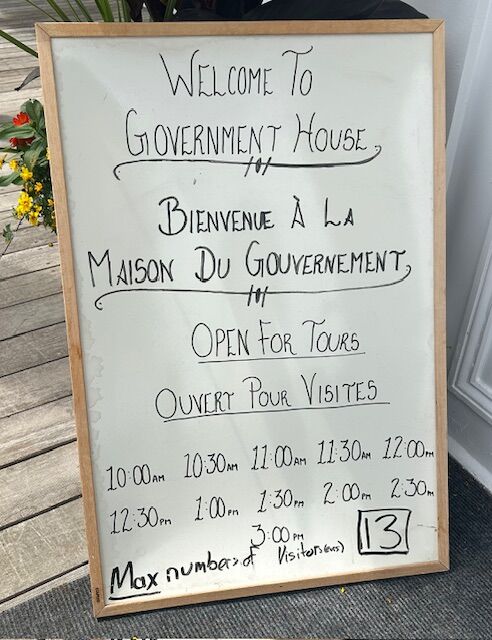 WELCOME TO
GOVERNMENT HOUSE
BIENVENUE À LA
MAISON DU GOUVERNEMENT
OPEN FOR TOURS
OUVERT POUR VISITES
10:00AM 10:30AM 11:00AM 11:30AM 12:00PM
12:30PM 1:00PM 1:30PM 2:00PM 2:30PM
3:00PM
Max number of Visitors 13